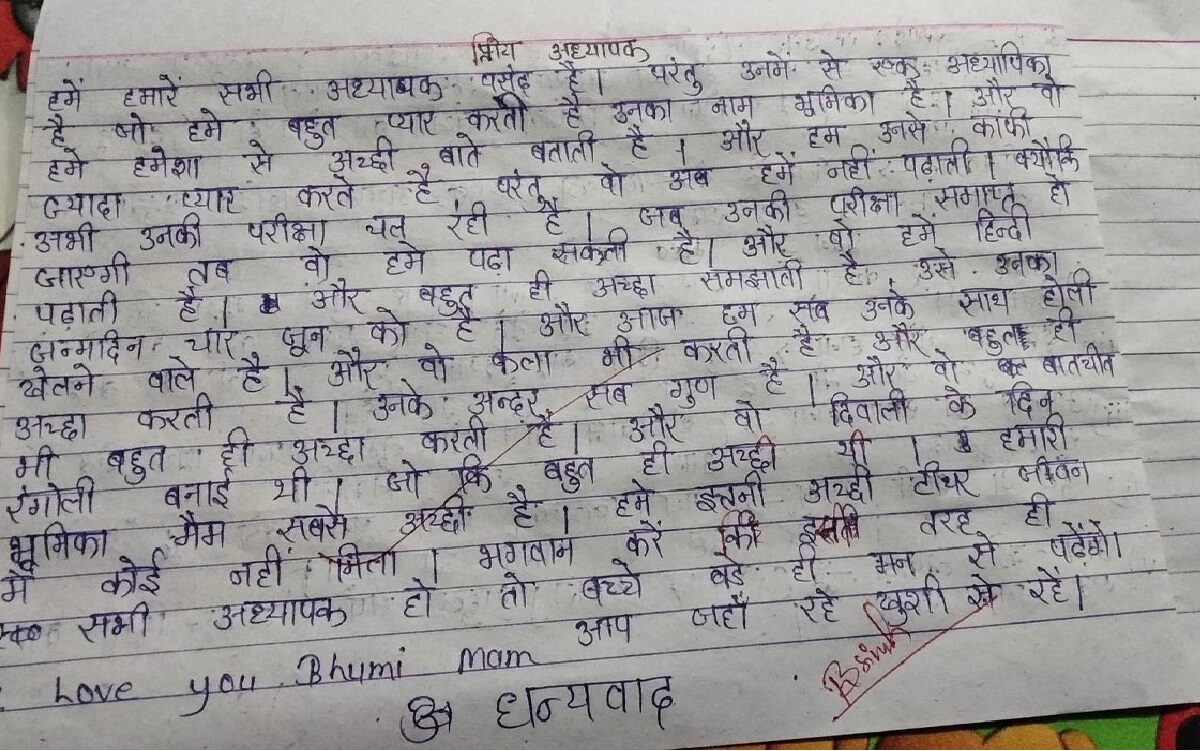 प्रिय अध्यापक
हमें हमारें सभी अध्यापक पसंद है। परंतु उनमें से एक अध्यापिका
है जो हमे बहुत प्यार करती है उनका नाम भुमिका है। और वो
हमे हमेशा से अच्छी बाते बताती है। और हम उनसे काफी
ज्यादा प्यार करते है परंतु वो अब हमें नहीं पढ़ाती। क्योंकि
अभी उनकी परीक्षा चल रही है। जब उनकी परीक्षा समाप्त हो
जाएगी तब वो हमे पढा सकती है। और वो हमें हिन्दी
पढ़ाती है। और बहुत ही अच्छा समझाती है उसे उनका
जन्मदिन चार जून को है। और आज हम सब उनके साथ होली
खेलने वाले है। और वो कला भी करती है और बहुत ही
अच्छा करती है। उनके अन्दर सब गुण है। और वो बातचीत
भी बहुत ही अच्छा करती है। और वो दिवाली के दिन
रंगोली बनाई थी। जो कि बहुत ही अच्छी थी। हमारी
भूमिका मैम सबसे अच्छी है। हमे इतनी अच्छी टीचर जीवन
में कोई नहीं मिला। भगवाम करें की इसी तरह ही
सभी अध्यापक हो तो बच्चे बडे ही मन से पढ़ेंगे।
आप जहाँ रहे खुशी से रहें।
Love you Bhumi Mam
धन्यवाद